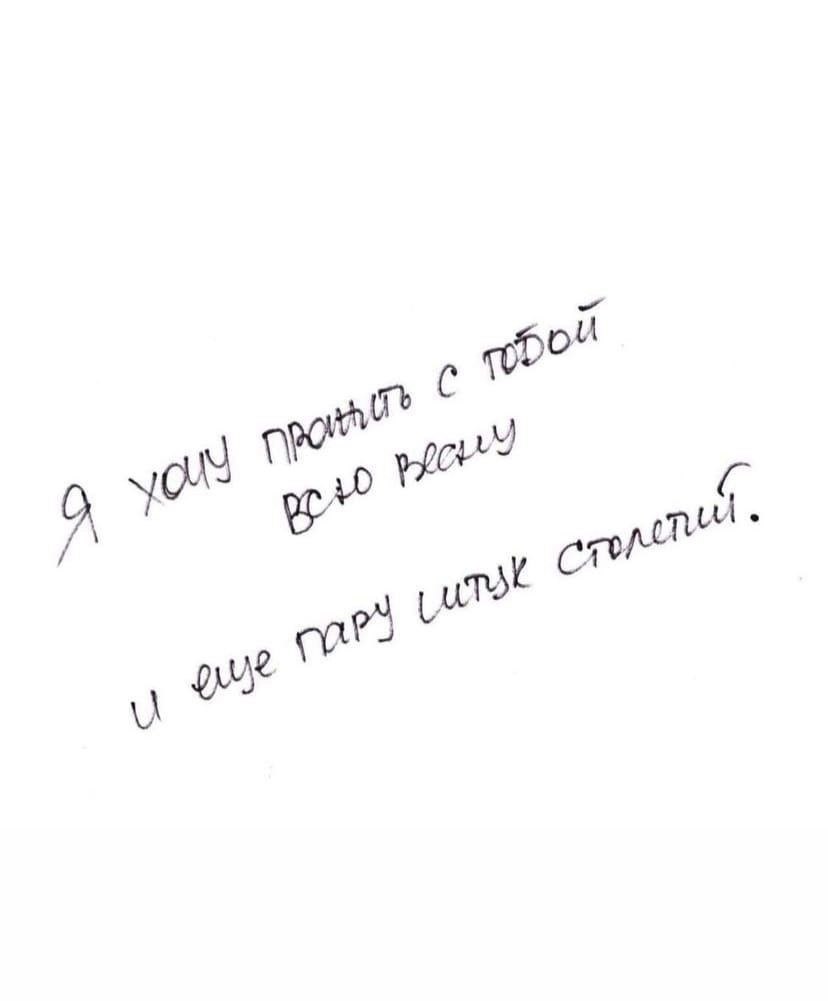 Я хочу прожить с тобой
всю весну
и еще пару штук столетий.